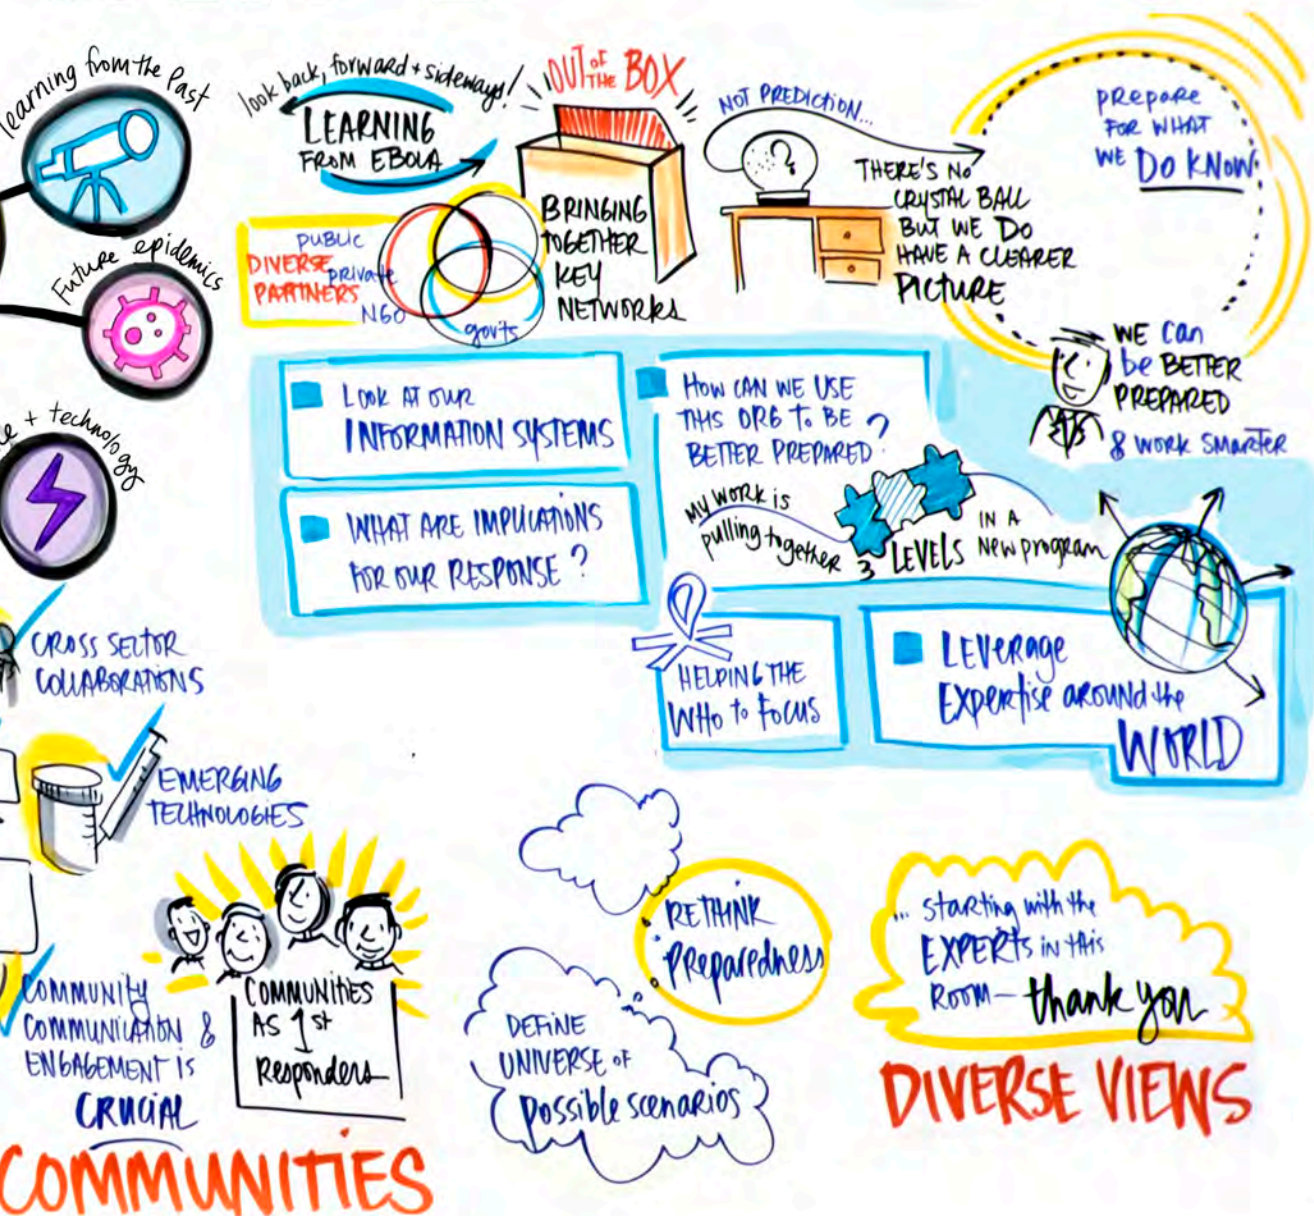 learning from the Past
Future epidemics
+ technology
look back, forward + sideways!
LEARNING
FROM EBOLA
OUT OF THE BOX
BRINGING
TOGETHER
KEY
NETWORKS
PUBLIC
DIVERSE
private
PARTNERS
NGO
gov'ts
NOT PREDICTION...
?
THERE'S NO
CRYSTAL BALL
BUT WE DO
HAVE A CLEARER
PICTURE
prepare
FOR WHAT
WE DO KNOW
WE can
be BETTER
PREPARED
& WORK SMARTER
LOOK AT OUR
INFORMATION SYSTEMS
WHAT ARE IMPLICATIONS
FOR OUR RESPONSE?
HOW CAN WE USE
THIS ORG TO BE
BETTER PREPARED?
MY WORK is
pulling together
3 LEVELS
IN A
New program
HELPING THE
WHO to Focus
LEVERAGE
Expertise around the
WORLD
CROSS SECTOR
COLLABORATIONS
EMERGING
TECHNOLOGIES
COMMUNITY
COMMUNICATION &
ENGAGEMENT is
CRUCIAL
COMMUNITIES
AS 1st
Responders
COMMUNITIES
RETHINK
Preparedness
DEFINE
UNIVERSE OF
possible scenarios
... starting with the
EXPERTS IN THIS
ROOM - thank you
DIVERSE VIEWS